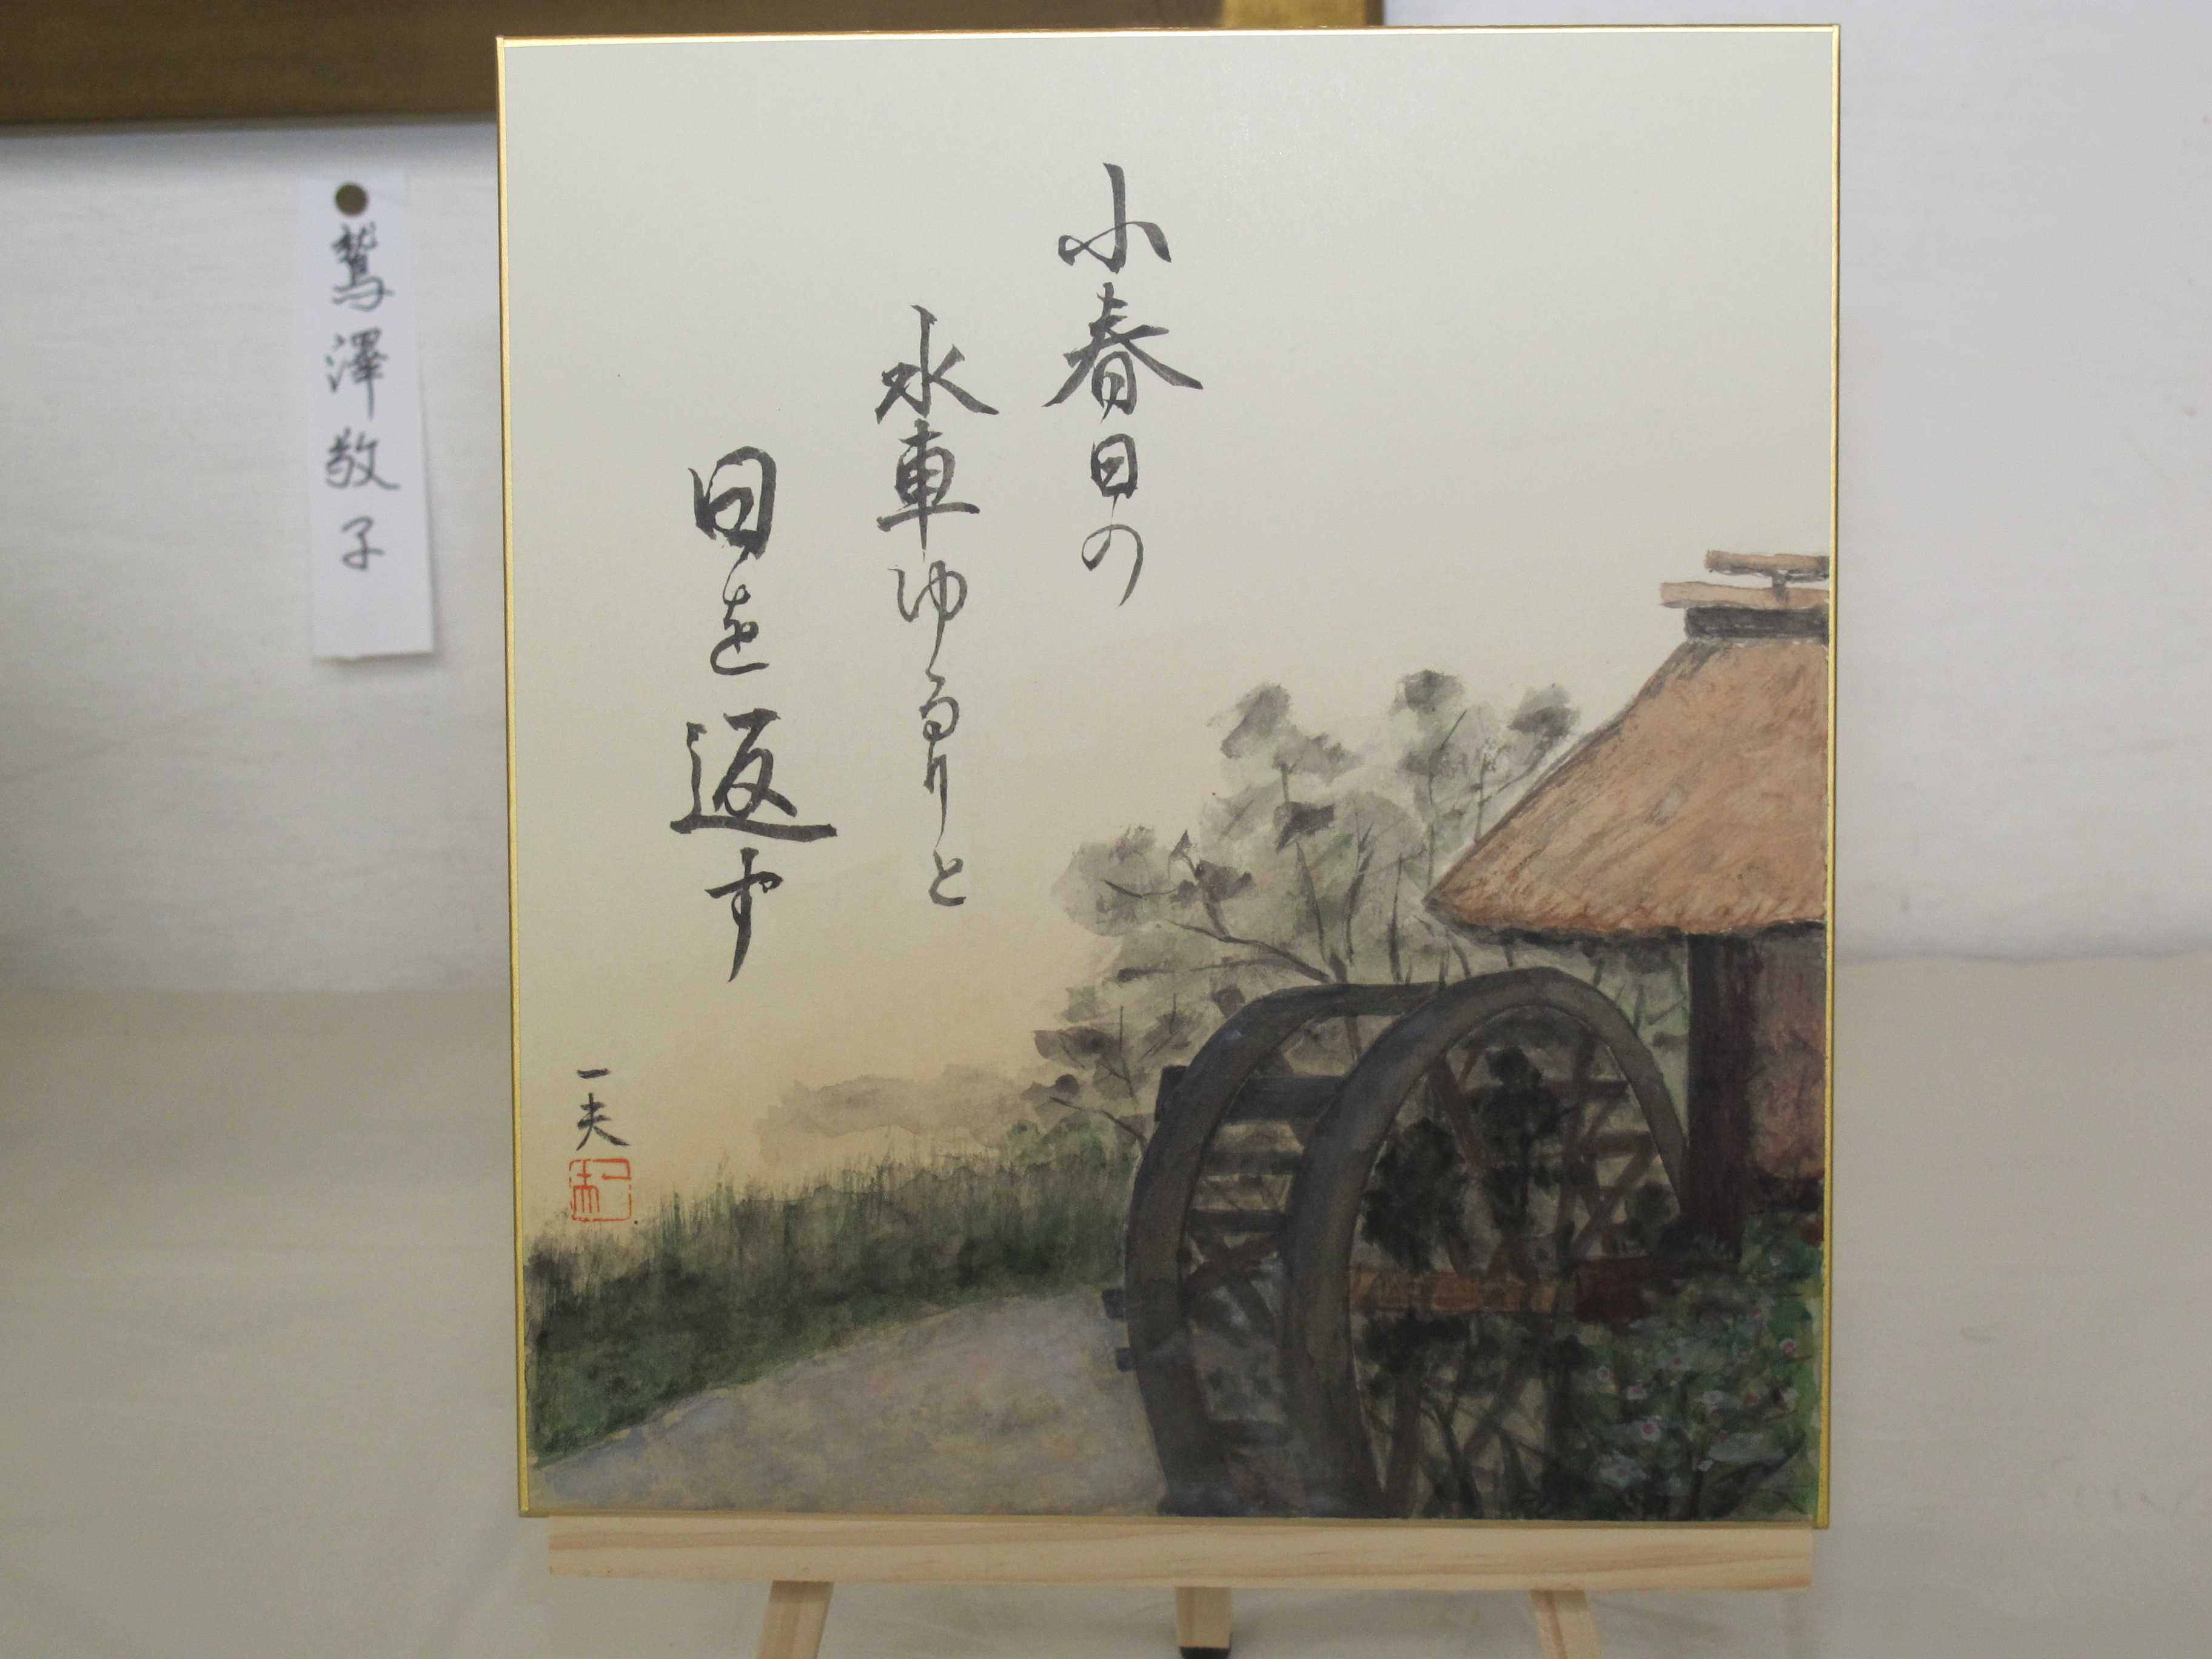 小春日の
水車ゆるりと
日を返す
一夫
鷲澤敬子